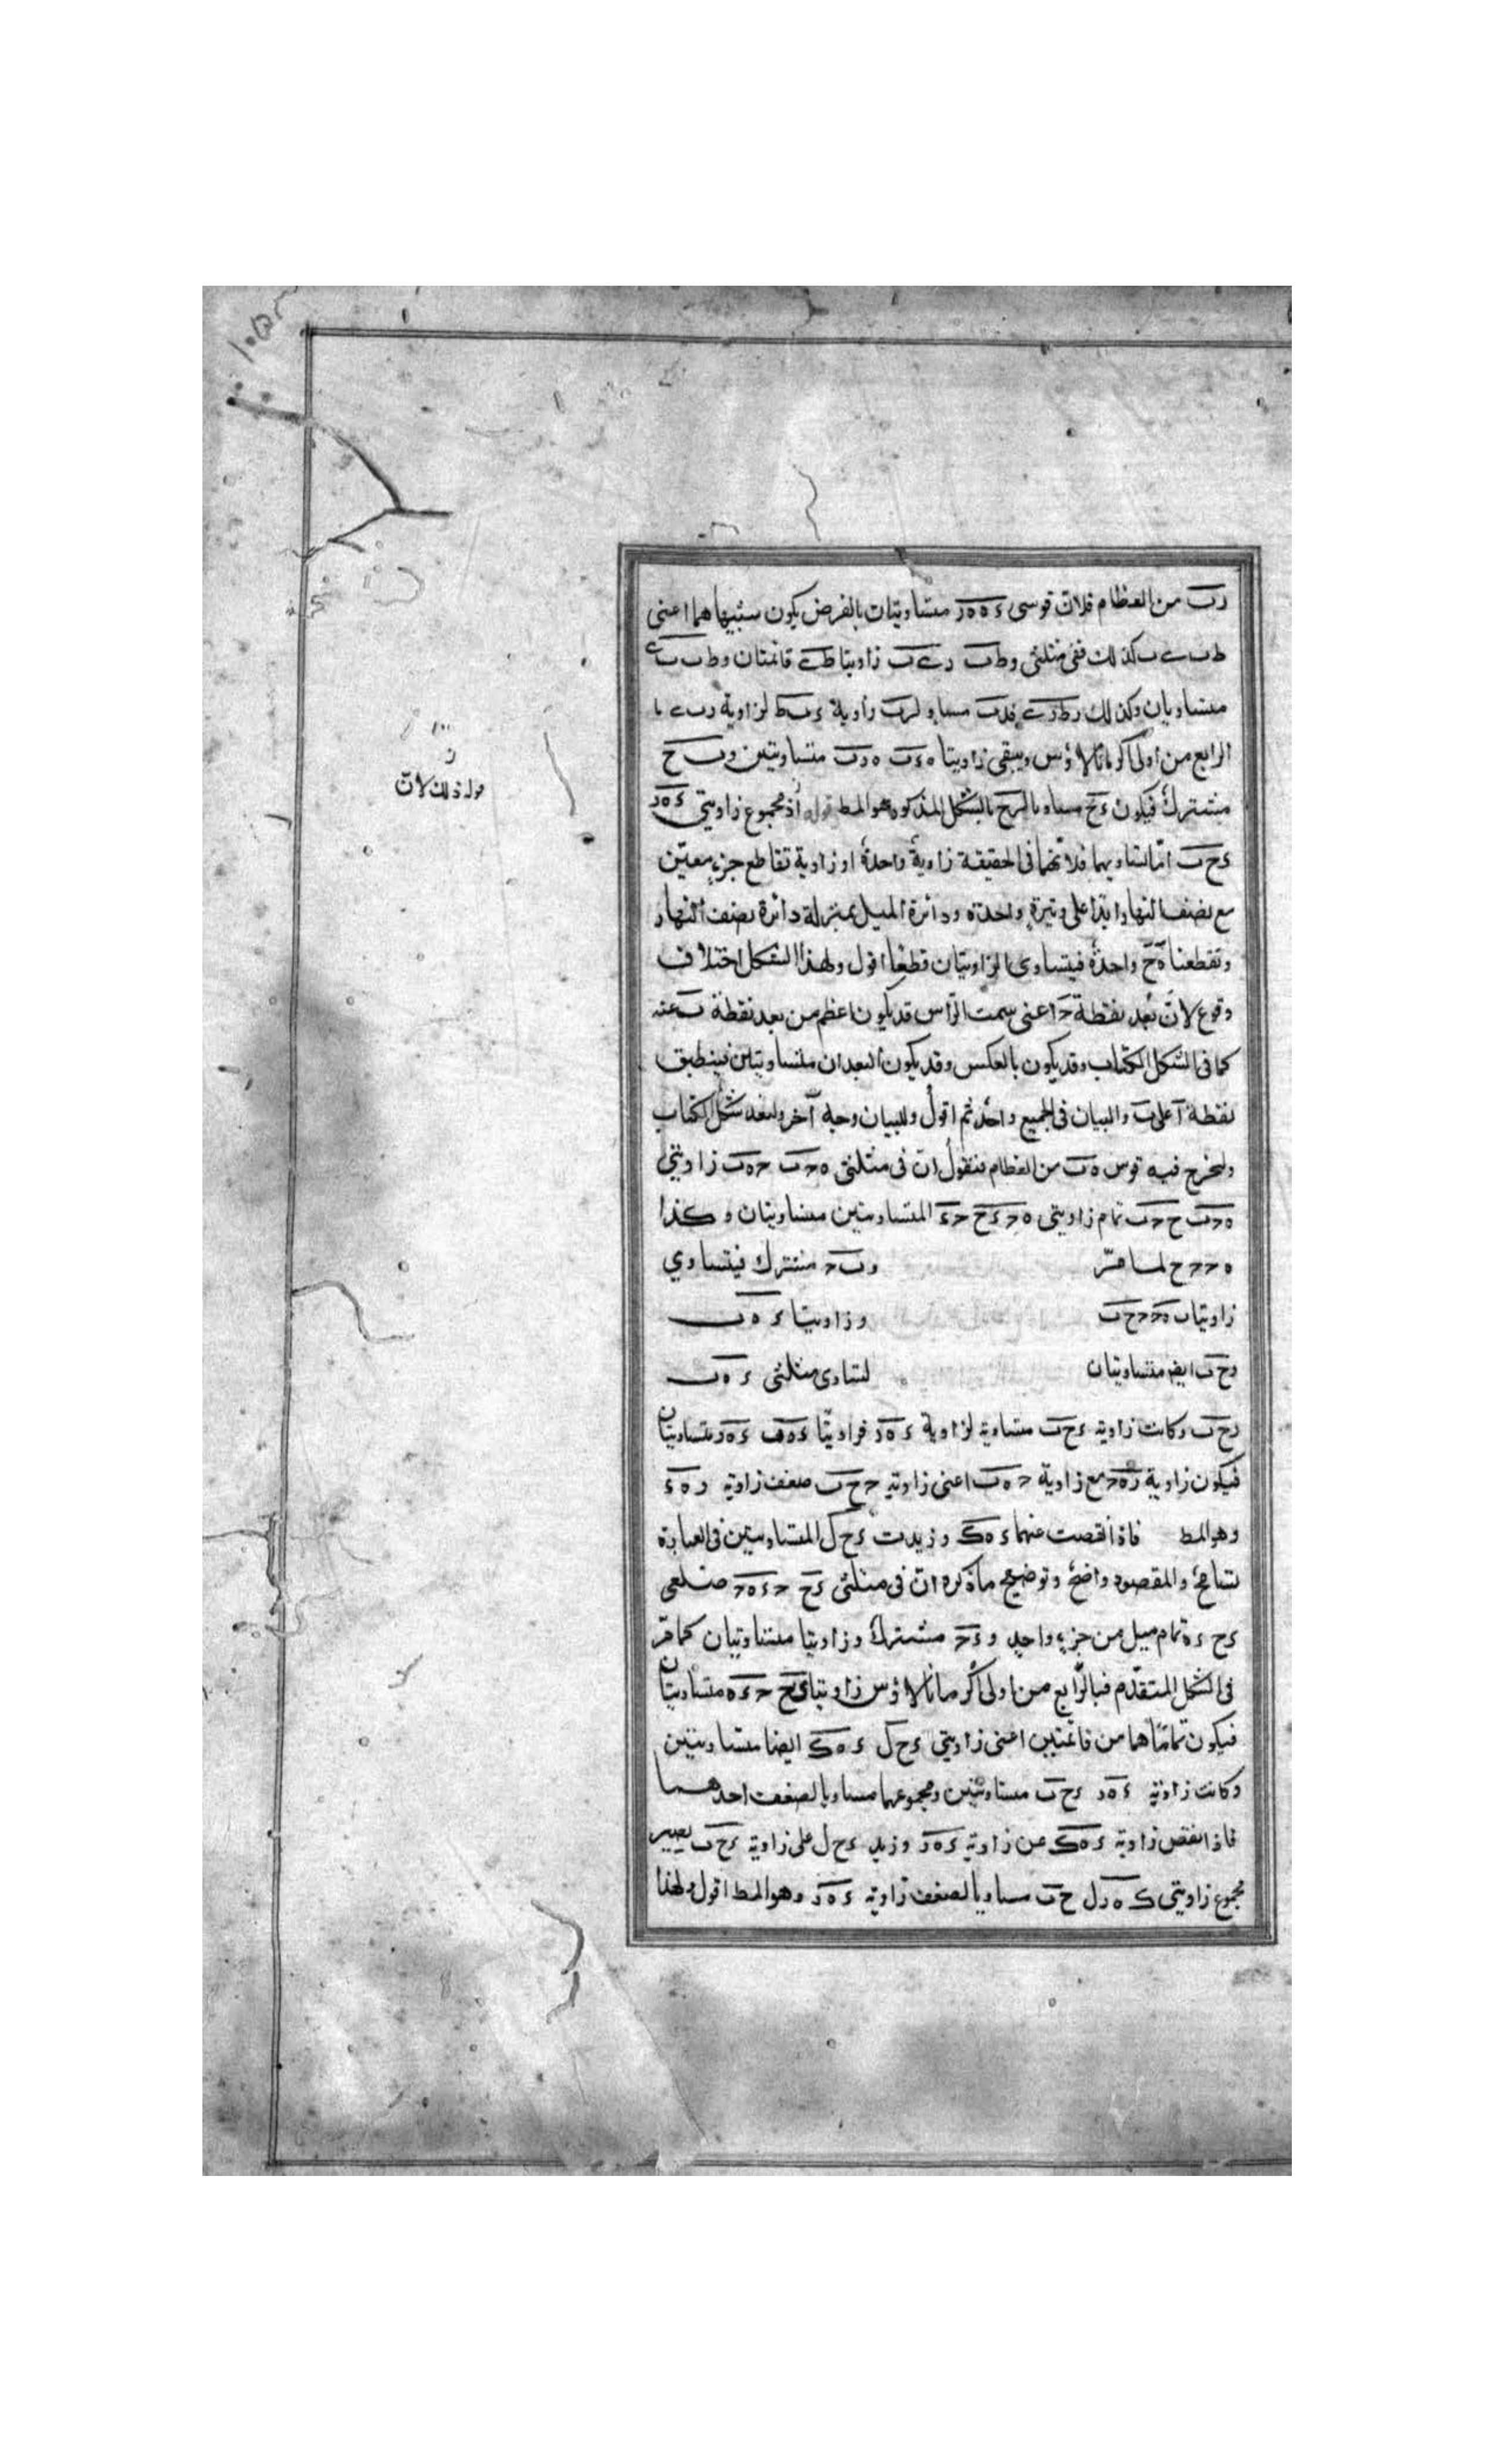 رب من العظام فلان قوسى ء ه ه ر متساويتان بالفرض يكون سببيها هما اعنى
ط ب ے ب كذلك ففى مثلثى وطب رے ب زاويتا ط ے قائمتان و ط ب ب ے
متساويان وكذلك رط رے فدب مساو لرب زاوية ء ب ط لزاوية ر ب ے با
الرابع من اولى اكر مانالاؤس ويبقى زاويتا ه ء ب ه ر ب متساويتين و ب ح
مشترك فيكون ء ح مساويا لرح بالشكل المذكور وهو المط قوله اذ مجموع زاويتى ء ه ر
ء ح ب امّا تساويهما فلانّهما فى الحقيقة زاوية واحدة او زاوية تقاطع جزء معيّن
مع نصف النهار ابدا على وتيرة واحدة ودائرة الميل بمنزلة دائرة نصف النهار
وتقطعنا ه ح واحدة فيتساوى الزاويتان قطعا اقول ولهذا الشكل اختلاف
وقوع لانّ بُعد نقطة ح اعنى سمت الرّاس قد يكون اعظم من بعد نقطة ب عنه
كما فى الشكل الكتاب وقد يكون بالعكس وقد يكون البعدان متساويتين فينطبق
نقطة آ على ب والبيان فى الجميع واحد ثم اقول وللبيان وجه آخر ولنعد شكل الكتاب
ولنخرج فيه قوس ه ب من العظام فنقول ان فى مثلثى ه ح ب ح ه ب زاويتى
ه ح ب ح ح ب تمام زاويتى ه ح ء ح ح ء المتساويتين متساويتان وكذا
ه ح ح ح لما مرّ و ب ح مشترك فيتساوي
زاويتاب ه ح ح ح ب وزاويتا ء ه ب
رح ب ايضا متساويتان لتساوى مثلثى ء ه ب
رح ب وكانت زاوية ء ح ب متساوية لزاوية ء ه ر فزاويتا ء ه ب ء ه ر متساويتان
فيكون زاوية ر ه ح مع زاوية ح ه ب اعنى زاوية ح ح ب ضعف زاوية ر ه ء
وهو المط فاذا نقصت عنهما ء ه ك وزيدت ء ح ل المتساويتين فى العبارة
تسامح والمقصود واضح وتوضيح ما ذكره انّ فى مثلثى ء ح ح ء ه ح ضلعى
ء ح ء ه تمام ميل من جزء واحد و ء ح مشترك وزاويتا متساويتان كما مرّ
فى الشكل المتقدّم فبالرّابع من اولى اكر مانالاؤس زاويتا ء ح ح ء ه متساويتان
فيكون تماماهما من قائمتين اعنى زاويتي ء ح ل ء ه ك ايضا متساويتين
وكانت زاوية ء ه ر ء ح ب متساويتين ومجموعهما مساويا لضعف احدهما
فاذا نقص زاوية ء ه ك عن زاوية ء ه ر وزيد ء ح ل على زاوية ء ح ب يصير
مجموع زاويتى ك ه ر ل ح ب مساويا لضعف زاوية ء ه ر وهو المط اقول ولهذا
قوله ذلك لانّ